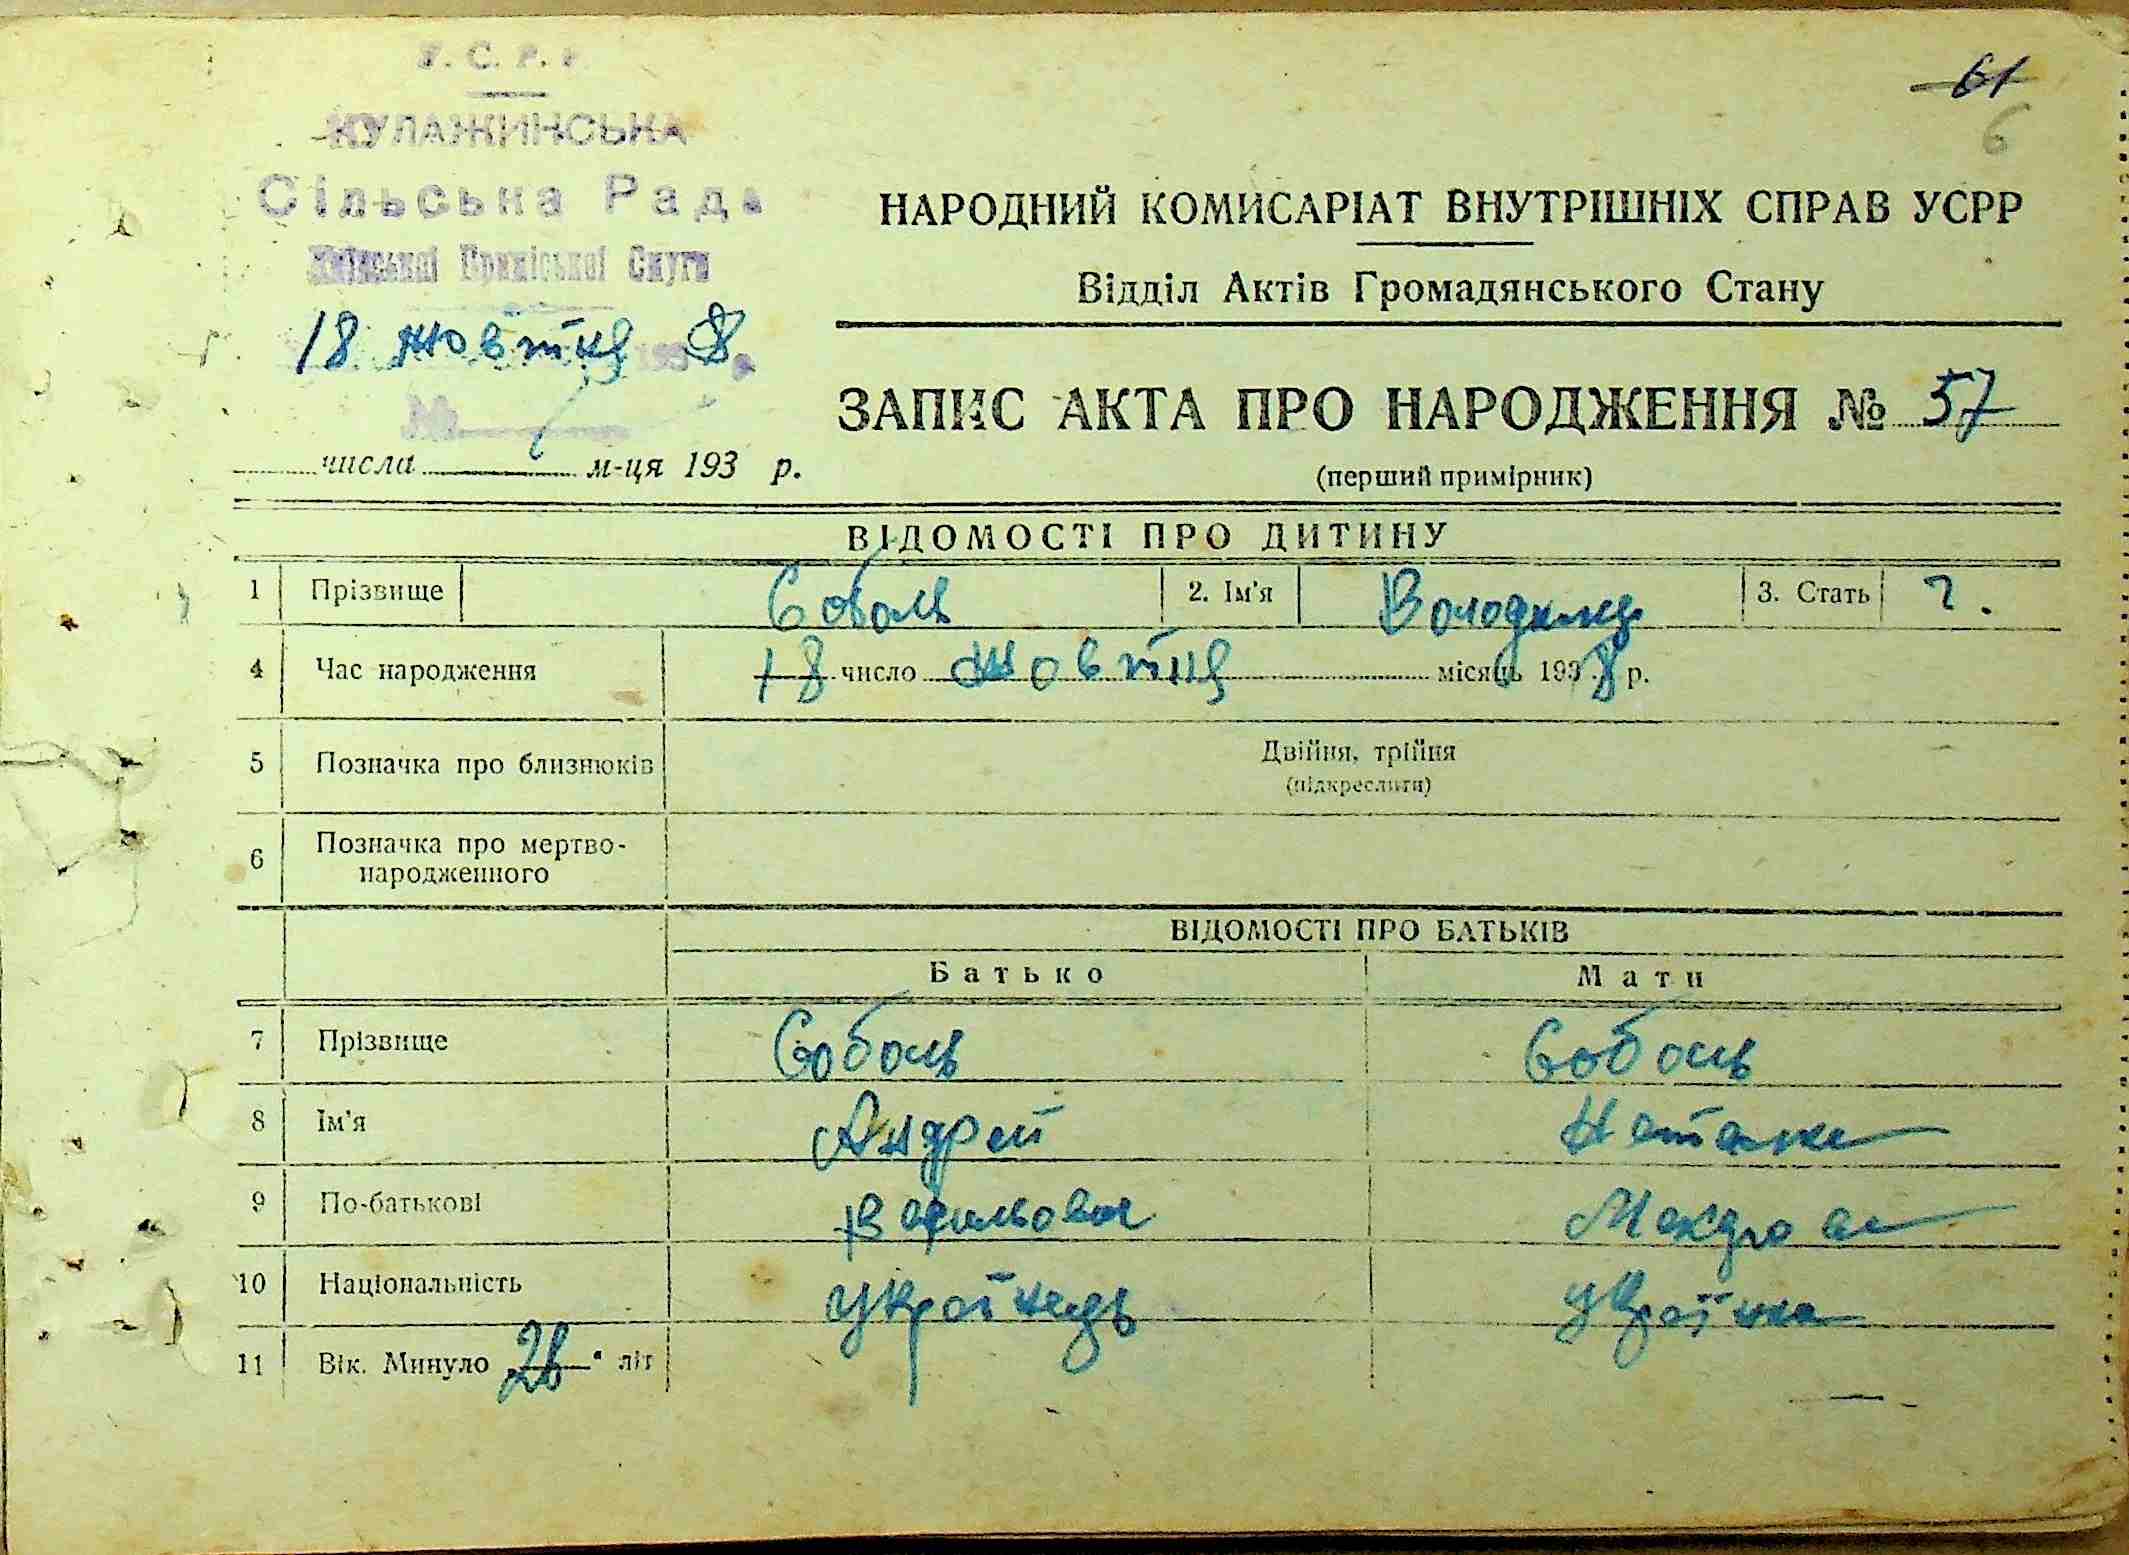 У. С. Р. Р.
КУЛАЖИНСЬКА
Сільська Рада
Київської Приміської Смуги
18 жовтня 1938 р.
№
числа м-ця 193 р.
61
6
НАРОДНИЙ КОМИСАРІАТ ВНУТРІШНІХ СПРАВ УСРР
Відділ Актів Громадянського Стану
ЗАПИС АКТА ПРО НАРОДЖЕННЯ № 57
(перший примірник)
ВІДОМОСТІ ПРО ДИТИНУ
1 Прізвище Соболь 2. Ім'я Володимир 3. Стать ч.
4 Час народження 18 число жовтня місяць 1938 р.
5 Позначка про близнюків Двійня, трійня
(підкреслити)
6 Позначка про мертво-
народженного
ВІДОМОСТІ ПРО БАТЬКІВ
Батько Мати
7 Прізвище Соболь Соболь
8 Ім'я Андрей Наталка
9 По-батькові Васильович
10 Національність українець українка
11 Вік. Минуло 28 літ